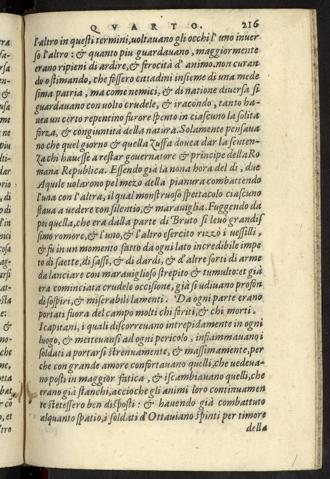 QVARTO. 216
l'altro in questi termini, voltauano gli occhi l'uno inuer
so l'altro: & quanto piu guardauano, maggiormente
erano ripieni di ardire, & ferocità d'animo, non curan
do o stimando, che fossero cittadini insieme di una mede
sima patria, ma come nemici, & di natione diuersa si
guardauano con volto crudele, & iracondo, tanto ha
uea un certo repentino furore spento in ciascuno la solita
forza, & congiuntità della natura. Solamente pensaua
no che quel giorno & quella zuffa douea dar la senten-
za chi hauesse a restar gouernatore & principe della Ro
mana Republica. Essendo già la nona hora del dì, due
Aquile uolarono pel mezo della pianura combattendo
l'una con l'altra, il qual monstruoso spettacolo ciascuno
staua a uedere con silentio, & marauiglia. Fuggendo da
poi quella, che era dalla parte di Bruto si leuò grandis
simo romore, & l'uno, & l'altro esercito rizzò i uessilli,
& fu in un momento fatto da ogni lato incredibile impe
to di saette, di sassi, & di dardi, & d'altre sorti di arme
da lanciare con marauiglioso strepito & tumulto: et già
era cominciata crudele occisione, già si udiuano profon
di sospiri, & miserabili lamenti. Da ogni parte erano
portati fuora del campo molti chi feriti, & chi morti.
I capitani, i quali discorreuano intrepidamente in ogni
luogo, & metteuansi ad ogni pericolo, infiammauano i
soldati a portarsi strenuamente, & massimamente, per
che con grande amore confortauano quelli, che uedeua-
no posti in maggior fatica, & iscambiauano quelli, che
erano già stanchi, accioche gli animi loro continuamen
te stetessero ben disposti: & hauendo già combattuto
alquanto spatio, i soldati d'Ottauiano spinti per timore
della